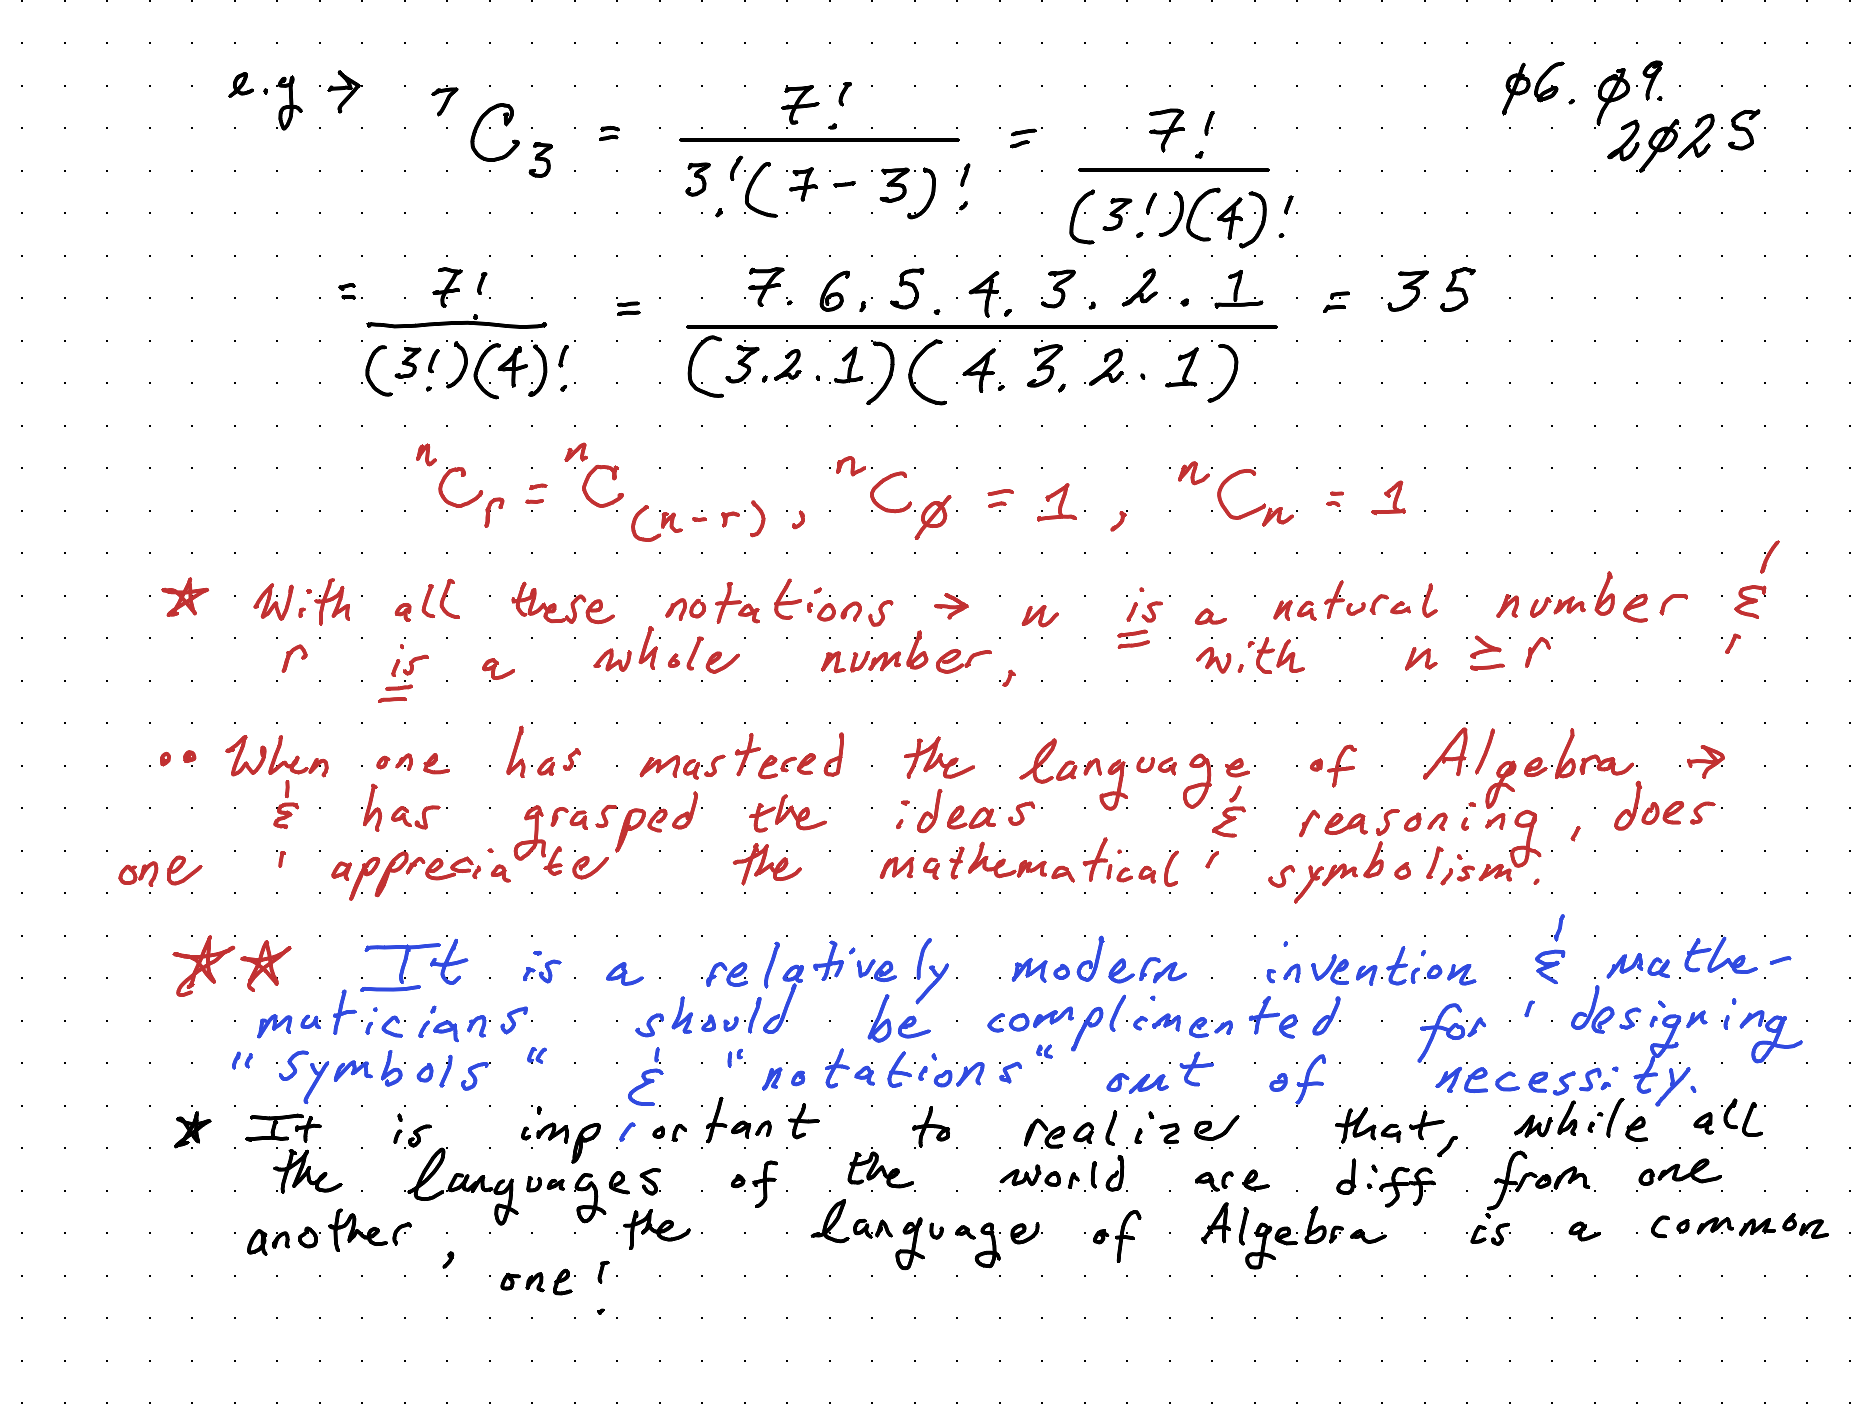 e.g → ⁷C₃ = 7! / 3!(7-3)! = 7! / (3!)(4)!
Ø6.Ø9.
2Ø25
= 7! / (3!)(4)! = 7.6.5.4.3.2.1 / (3.2.1)(4.3.2.1) = 35
ⁿCᵣ = ⁿC₍ₙ₋ᵣ₎, ⁿCø = 1, ⁿCₙ = 1
☆ With all these notations → n is a natural number &
r is a whole number, with n ≥ r
•• When one has mastered the language of Algebra →
& has grasped the ideas & reasoning, does
one appreciate the mathematical symbolism.
☆☆ It is a relatively modern invention & mathe-
maticians should be complimented for designing
"symbols" & "notations" out of necessity.
☆ It is important to realize that, while all
the languages of the world are diff from one
another, the language of Algebra is a common
one!